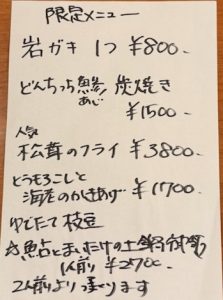 限定メニュー
岩ガキ 1つ ¥800-
どんちっち鯵 炭焼き
あじ
¥1500-
人気
松茸のフライ ¥3800-
とうもろこしと
海老のかきあげ ¥1700
ゆでたて 枝豆
とまいたけの土鍋御飯
1人前 ¥2700-
2人前より承ります